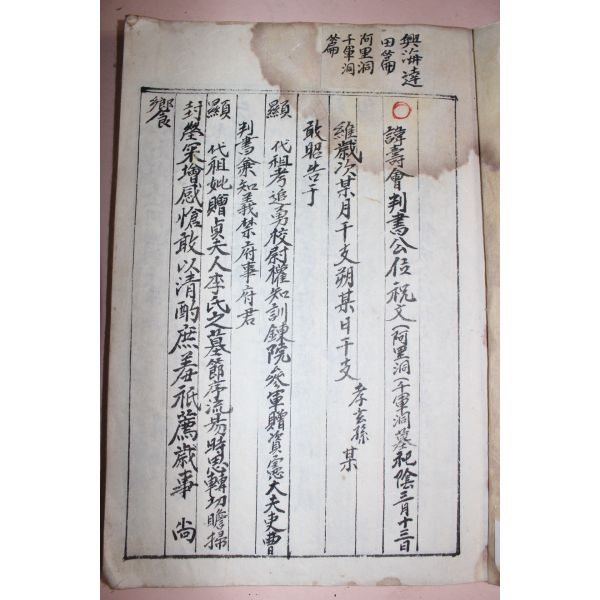 興海達
田篇
阿里洞
千軍洞
篇
諱壽會判書公位祝文(阿里洞)千軍洞墓祀陰三月十三日
維歲次某月干支朔某日干支 孝玄孫 某
敢昭告于
顯 代祖考追勇校尉權知訓鍊院參軍贈資憲大夫吏曹
判書兼知義禁府事府君
顯 代祖妣贈貞夫人李氏之墓節序流易時思轉切瞻掃
封塋采增感愴敢以清酌庶羞祗薦歲事 尙
饗